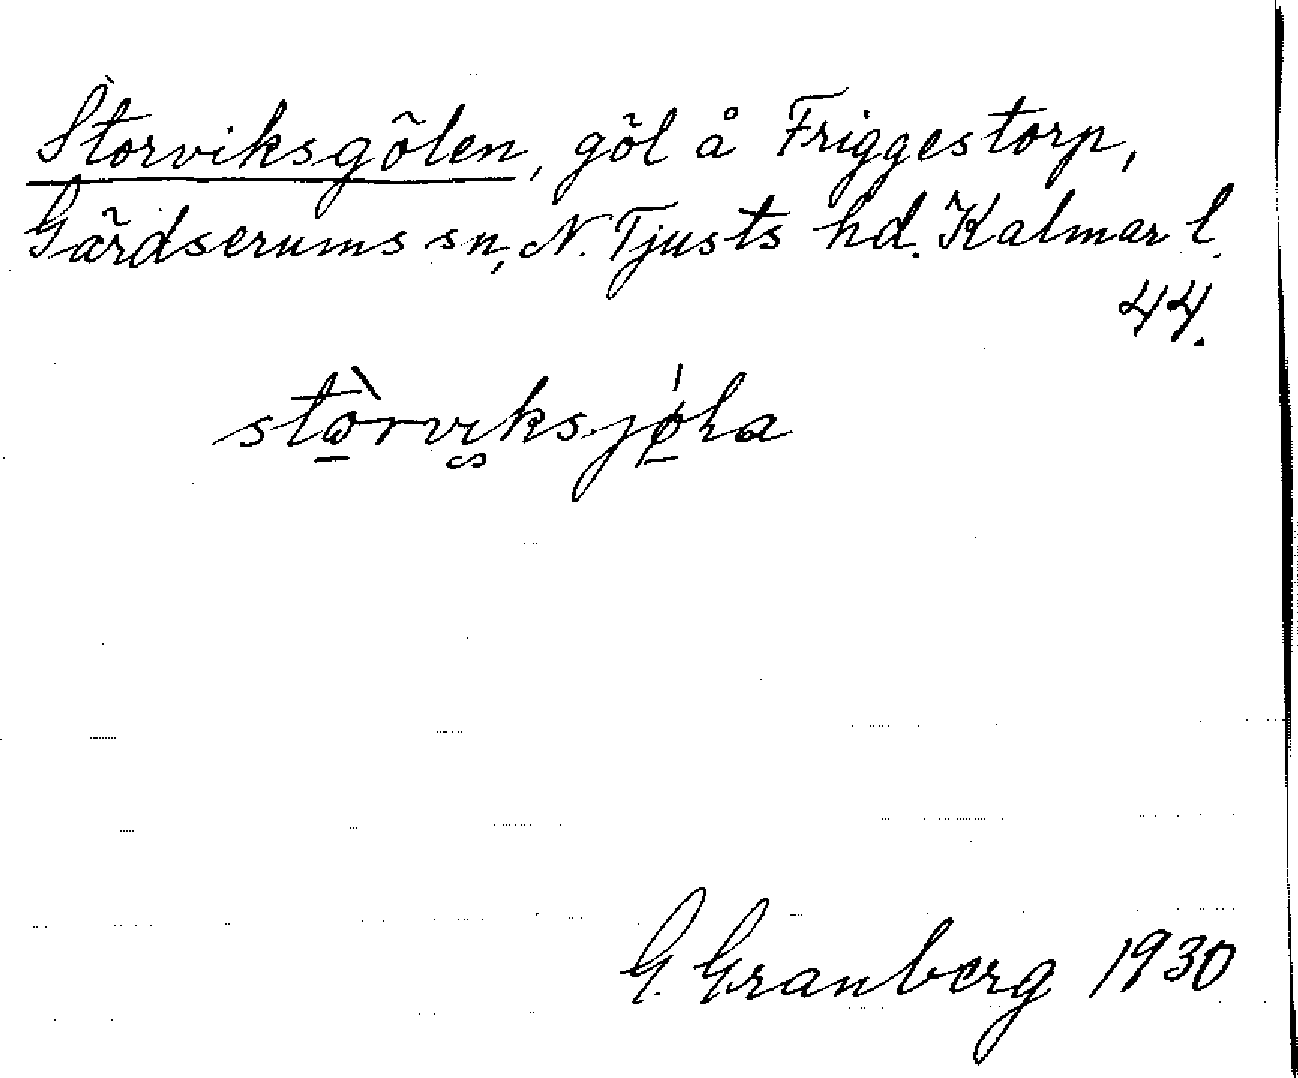 Storviksgölen, göl å Friggestorp,
Gärdserums sn, N. Tjusts hd. Kalmar l.
44.
stòrviksjø̍la
G. Granberg 1930